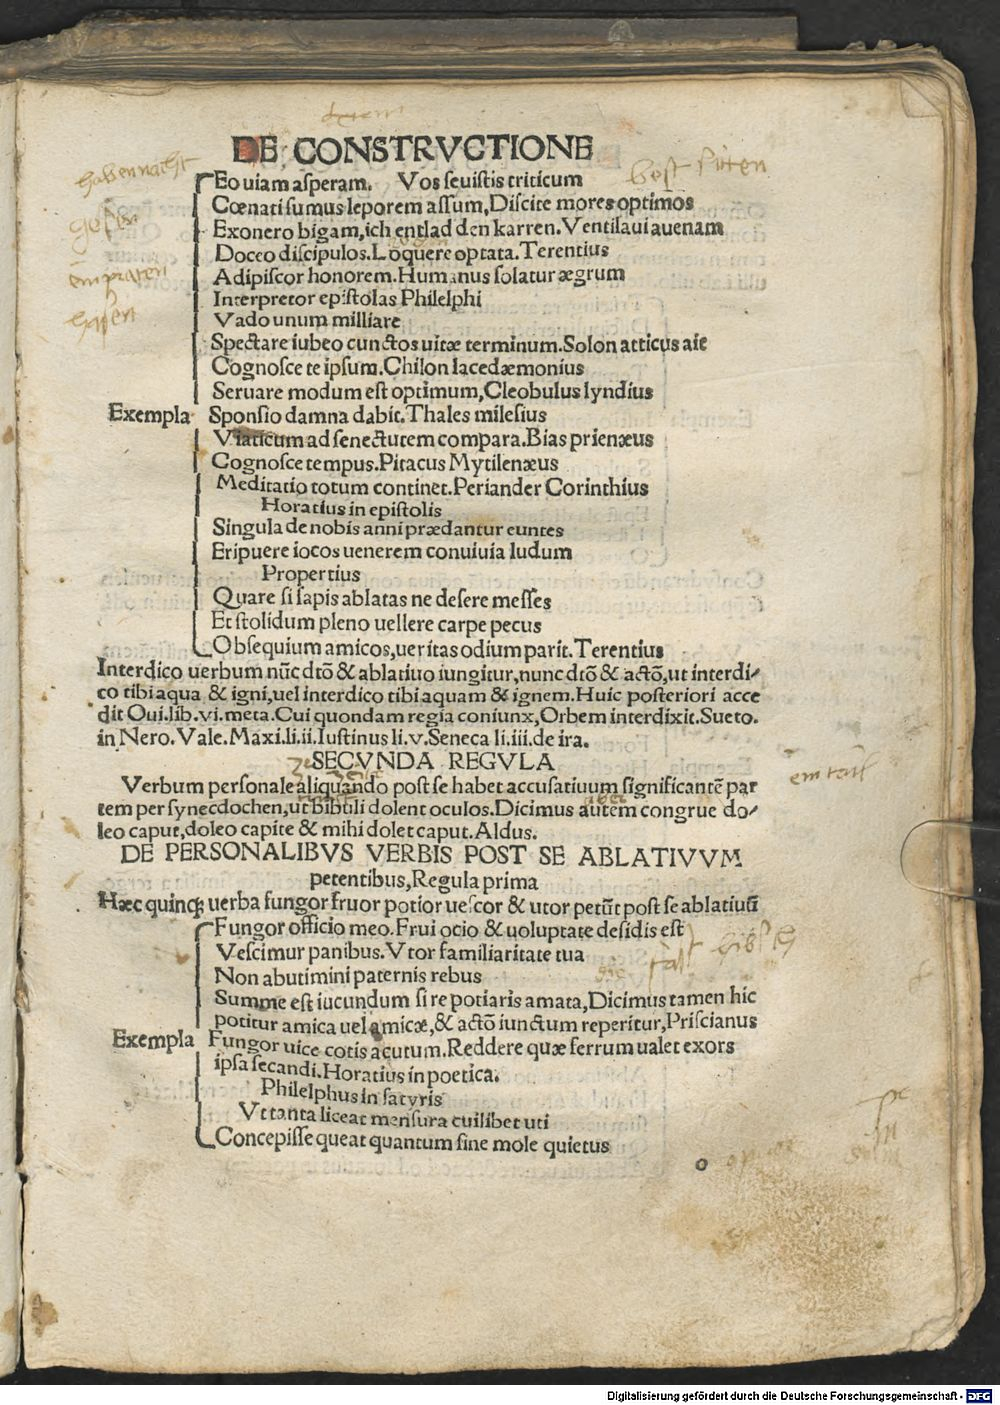 DE CONSTRVCTIONE
Eo uiam asperam. Vos seuistis triticum
Cœnati sumus leporem assum, Discite mores optimos
Exonero bigam, ich entlad den karren. Ventilaui auenam
Doceo discipulos. Loquere optata. Terentius
Adipiscor honorem. Humanus solatur ægrum
Interpretor epistolas Philelphi
Vado unum milliare
Spectare iubeo cunctos uitæ terminum. Solon atticus ait
Cognosce te ipsum. Chilon lacedæmonius
Seruare modum est optimum, Cleobulus lyndius
Exempla Sponsio damna dabit. Thales milesius
Viaticum ad senectutem compara. Bias prienæus
Cognosce tempus. Pitacus Mytilenæus
Meditatio totum continet. Periander Corinthius
Horatius in epistolis
Singula de nobis anni prædantur euntes
Eripuere iocos uenerem conuiuia ludum
Propertius
Quare si sapis ablatas ne desere messes
Et stolidum pleno uellere carpe pecus
Obsequium amicos, ueritas odium parit. Terentius
Interdico uerbum nūc dtō & ablatiuo iungitur, nunc dtō & actō, ut interdi⸗
co tibi aqua & igni, uel interdico tibi aquam & ignem. Huic posteriori acce
dit Oui. lib. vi. meta. Cui quondam regia coniunx, Orbem interdixit. Sueto.
in Nero. Vale. Maxi. li. ii. Iustinus li. v. Seneca li. iii. de ira.
SECVNDA REGVLA
Verbum personale aliquando post se habet accusatiuum significantē par
tem per synecdochen, ut bibuli dolent oculos. Dicimus autem congrue do⸗
leo caput, doleo capite & mihi dolet caput. Aldus.
DE PERSONALIBVS VERBIS POST SE ABLATIVVM
petentibus, Regula prima
Hæc quinqꝫ uerba fungor fruor potior uescor & utor petūt post se ablatiuū
Fungor officio meo. Frui ocio & uoluptate desidis est
Vescimur panibus. Vtor familiaritate tua
Non abutimini paternis rebus
Summe est iucundum si re potiaris amata, Dicimus tamen hic
potitur amica uel amicæ, & actō iunctum reperitur, Priscianus
Exempla Fungor uice cotis acutum. Reddere quæ ferrum ualet exors
ipsa secandi. Horatius in poetica.
Philelphus in satyris
Vt tanta liceat mensura cuilibet uti
Concepisse queat quantum sine mole quietus
Digitalisierung gefördert durch die Deutsche Forschungsgemeinschaft - DFG